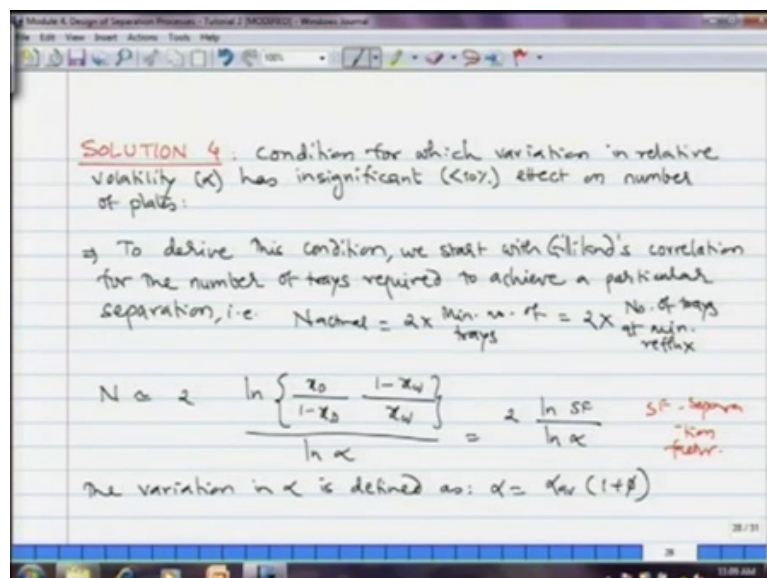 Module 4. Design of Separation Processes - Tutorial 2 [MODIFIED] - Windows Journal
File Edit View Insert Actions Tools Help
100%
SOLUTION 4 : Condition for which variation in relative
volatility (α) has insignificant (<10%) effect on number
of plates:
⇒ To derive this condition, we start with Gililand's correlation
for the number of trays required to achieve a particular
separation, i.e. Nactual = 2x Min. no. of trays = 2x No. of trays at min. reflux
N ≃ 2 ln { xD / (1-xD) (1-xW) / xW } / ln α = 2 ln SF / ln α
SF - Separa
-tion
factor.
The variation in α is defined as: α = αav (1+φ)
28 / 31
28
11:09 AM